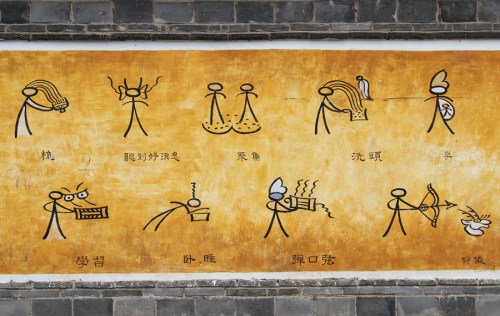 梳
聽到好消息
聚集
洗頭
學習
卧睡
彈口弦
狩獵